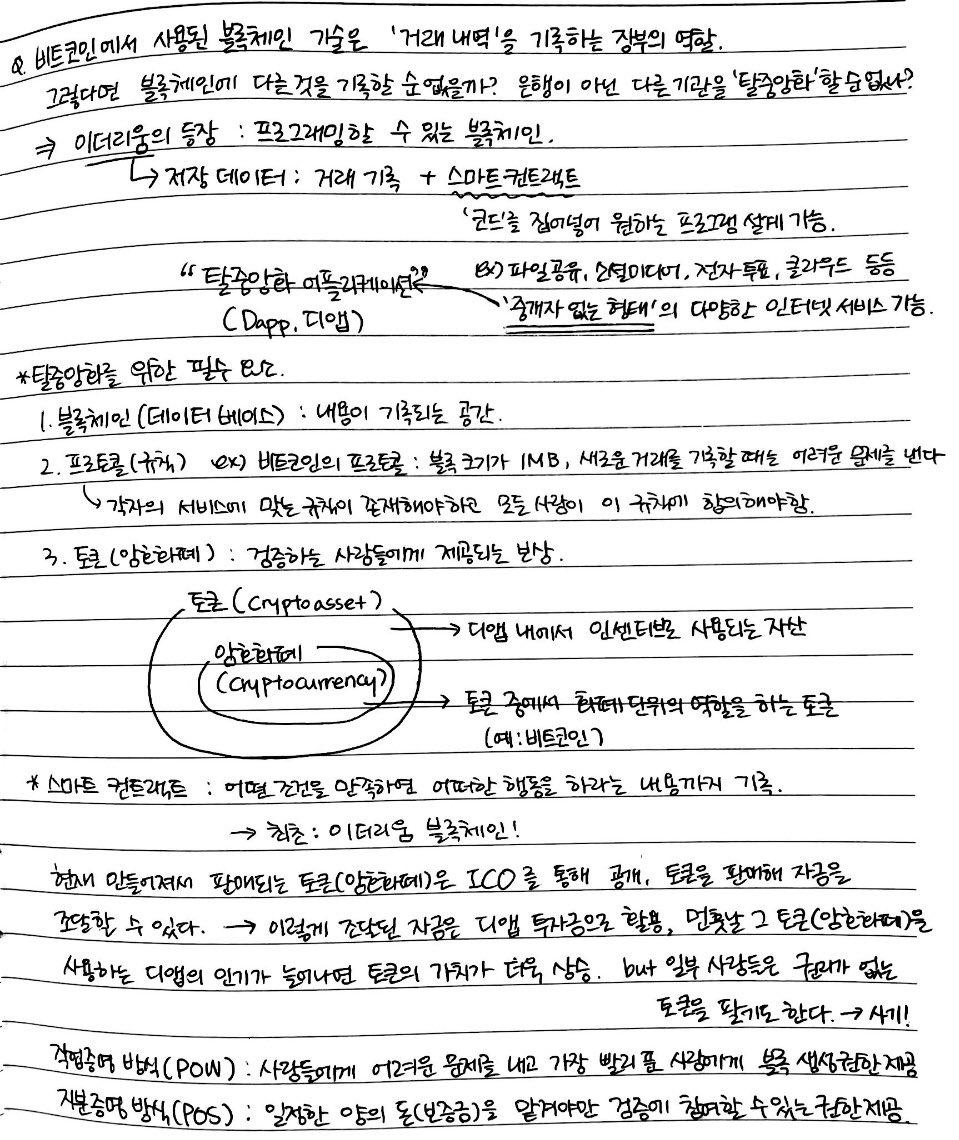 Q. 비트코인에서 사용된 블록체인 기술은 '거래내역'을 기록하는 장부의 역할.
그렇다면 블록체인에 다른것을 기록할 순 없을까? 은행이 아닌 다른 기관을 '탈중앙화'할 순 없나?
⇒ 이더리움의 등장 : 프로그래밍할 수 있는 블록체인.
↳ 저장 데이터 : 거래 기록 + 스마트컨트랙트
'코드'를 집어넣어 원하는 프로그램 설계 가능.
"탈중앙화 어플리케이션" ex) 파일공유, 소셜미디어, 전자투표, 클라우드 등등
(Dapp, 디앱) '중개자 없는 형태'의 다양한 인터넷 서비스 가능.
*탈중앙화를 위한 필수 요소.
1. 블록체인 (데이터 베이스) : 내용이 기록되는 공간.
2. 프로토콜(규칙) ex) 비트코인의 프로토콜 : 블록크기가 1MB, 새로운 거래를 기록할 때는 어려운 문제를 낸다
↳ 각자의 서비스에 맞는 규칙이 존재해야하고 모든 사람이 이 규칙에 합의해야함.
3. 토큰 (암호화폐) : 검증하는 사람들에게 제공되는 보상.
토큰 (Cryptoasset)
→ 디앱 내에서 인센티브로 사용되는 자산
암호화폐
(Cryptocurrency)
→ 토큰 중에서 화폐 단위의 역할을 하는 토큰
(예:비트코인)
* 스마트 컨트랙트 : 어떤 조건을 만족하면 어떠한 행동을 하라는 내용까지 기록.
→ 최초 : 이더리움 블록체인!
현재 만들어져서 판매되는 토큰(암호화폐)은 ICO를 통해 공개, 토큰을 판매해 자금을
조달할 수 있다. → 이렇게 조달된 자금은 디앱 투자금으로 활용, 먼훗날 그 토큰(암호화폐)을
사용하는 디앱의 인기가 늘어나면 토큰의 가치가 더욱 상승. but 일부 사람들은 권리가 없는
토큰을 팔기도 한다. → 사기!
작업증명 방식(POW) : 사람들에게 어려운 문제를 내고 가장 빨리 푼 사람에게 블록 생성권한 제공
지분증명 방식(POS) : 일정한 양의 돈(보증금)을 맡겨야만 검증에 참여할 수 있는 권한 제공.